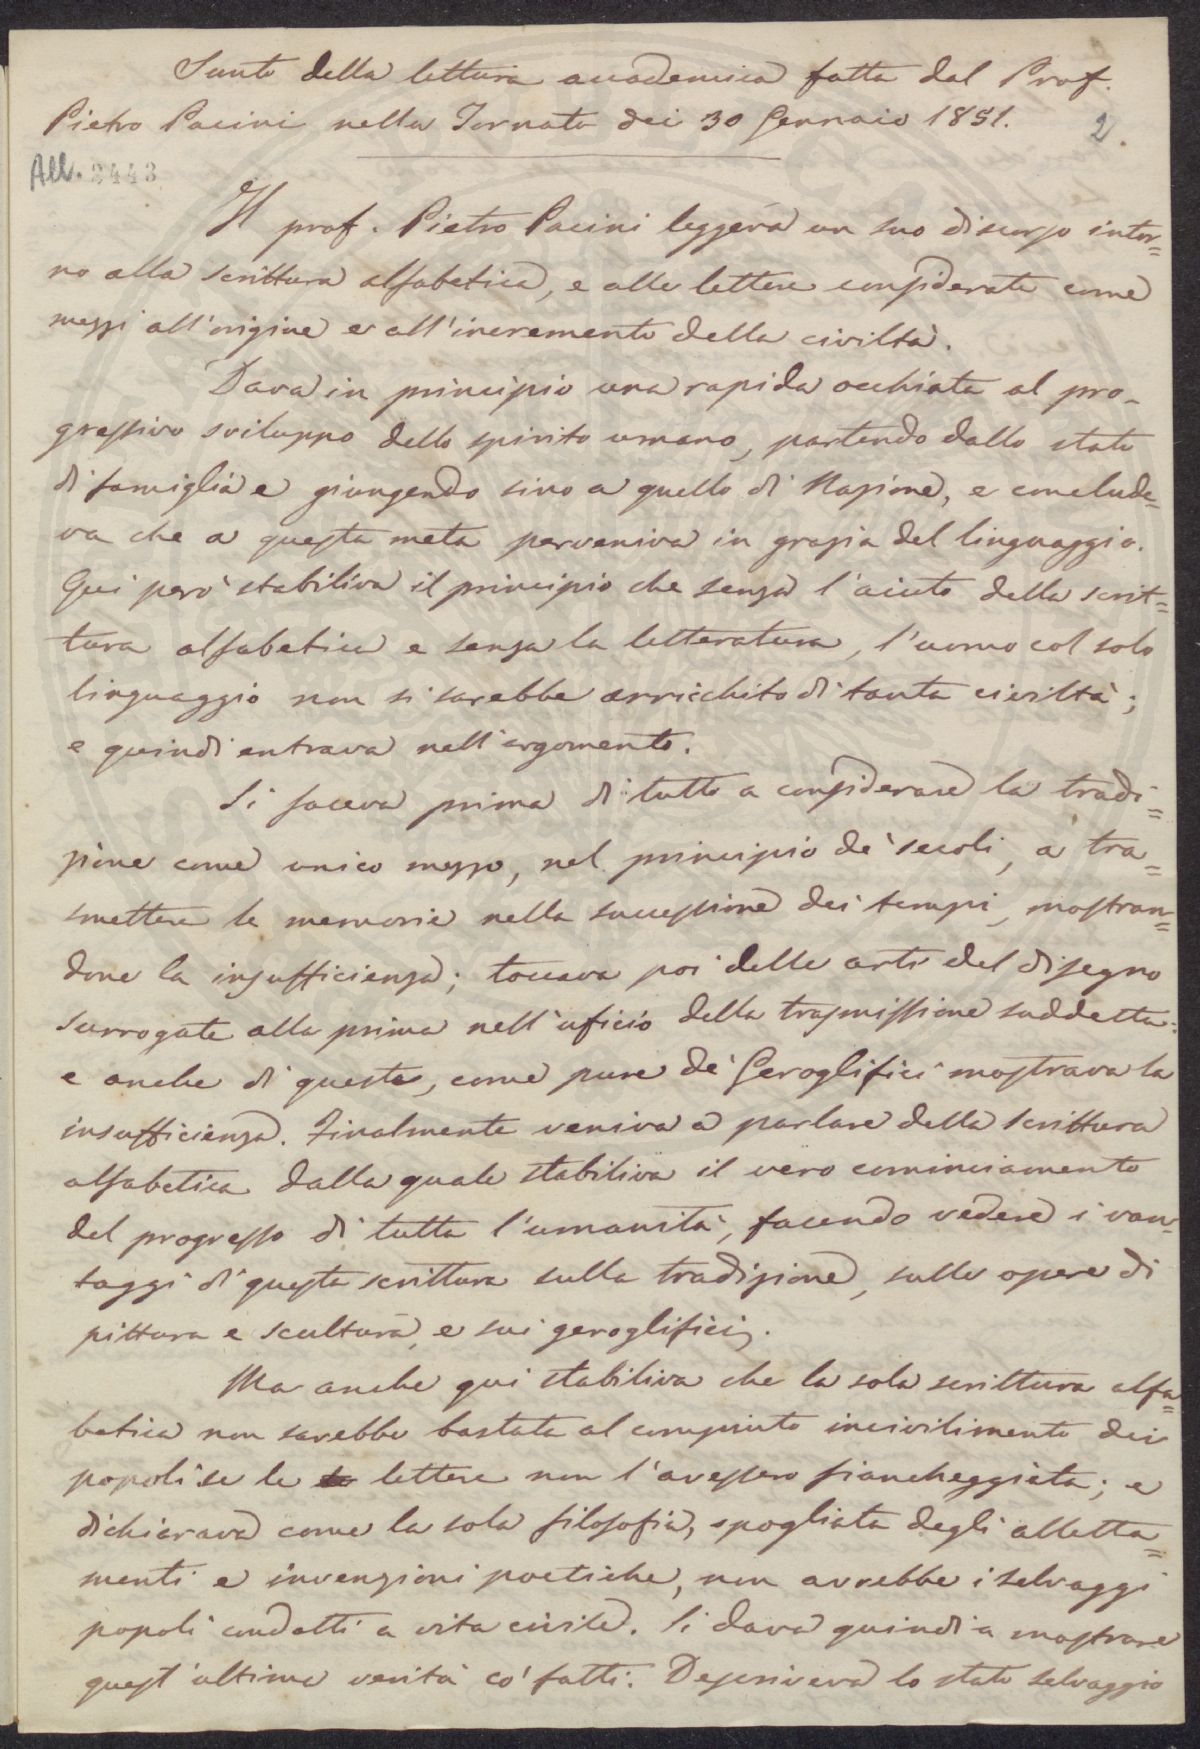 Sunto della lettura accademica fatta dal Prof.
Pietro Pacini nella Tornata dei 30 Gennaio 1851.
2.
All. 2443
Il prof. Pietro Pacini leggeva un suo discorso intor=
no alla scrittura alfabetica, e alle lettere considerate come
mezzi all'origine e all'incremento della civiltà.
Dava in principio una rapida occhiata al pro-
gressivo sviluppo dello spirito umano, partendo dallo stato
di famiglia e giungendo sino a quello di Nazione, e conclude=
va che a questa meta perveniva in grazia del linguaggio.
Qui però stabiliva il principio che senza l'aiuto della scrit=
tura alfabetica e senza la letteratura, l'uomo col solo
linguaggio non si sarebbe arricchito di tanta civiltà;
e quindi entrava nell'argomento.
Si faceva prima di tutto a considerare la tradi=
zione come unico mezzo, nel principio de' secoli, a tra=
smettere le memorie nella successione dei tempi, mostran=
done la insufficienza; toccava poi delle arti del disegno
surrogate alla prima nell'uficio della trasmissione suddetta:
e anche di queste, come pure de' Geroglifici mostrava la
insufficienza. Finalmente veniva a parlare della scrittura
alfabetica dalla quale stabiliva il vero cominciamento
del progresso di tutta l'umanità, facendo vedere i van=
taggi di questa scrittura sulla tradizione, sulle opere di
pittura e scultura, e sui geroglifici.
Ma anche qui stabiliva che la sola scrittura alfa=
betica non sarebbe bastata al compiuto incivilimento dei
popoli se le lettere non l'avessero fiancheggiata; e
dichiarava come la sola filosofia, spogliata degli alletta=
menti e invenzioni poetiche, non avrebbe i selvaggi
popoli condotti a vita civile. Si dava quindi a mostrare
quest'ultima verità co' fatti. Descriveva lo stato selvaggio